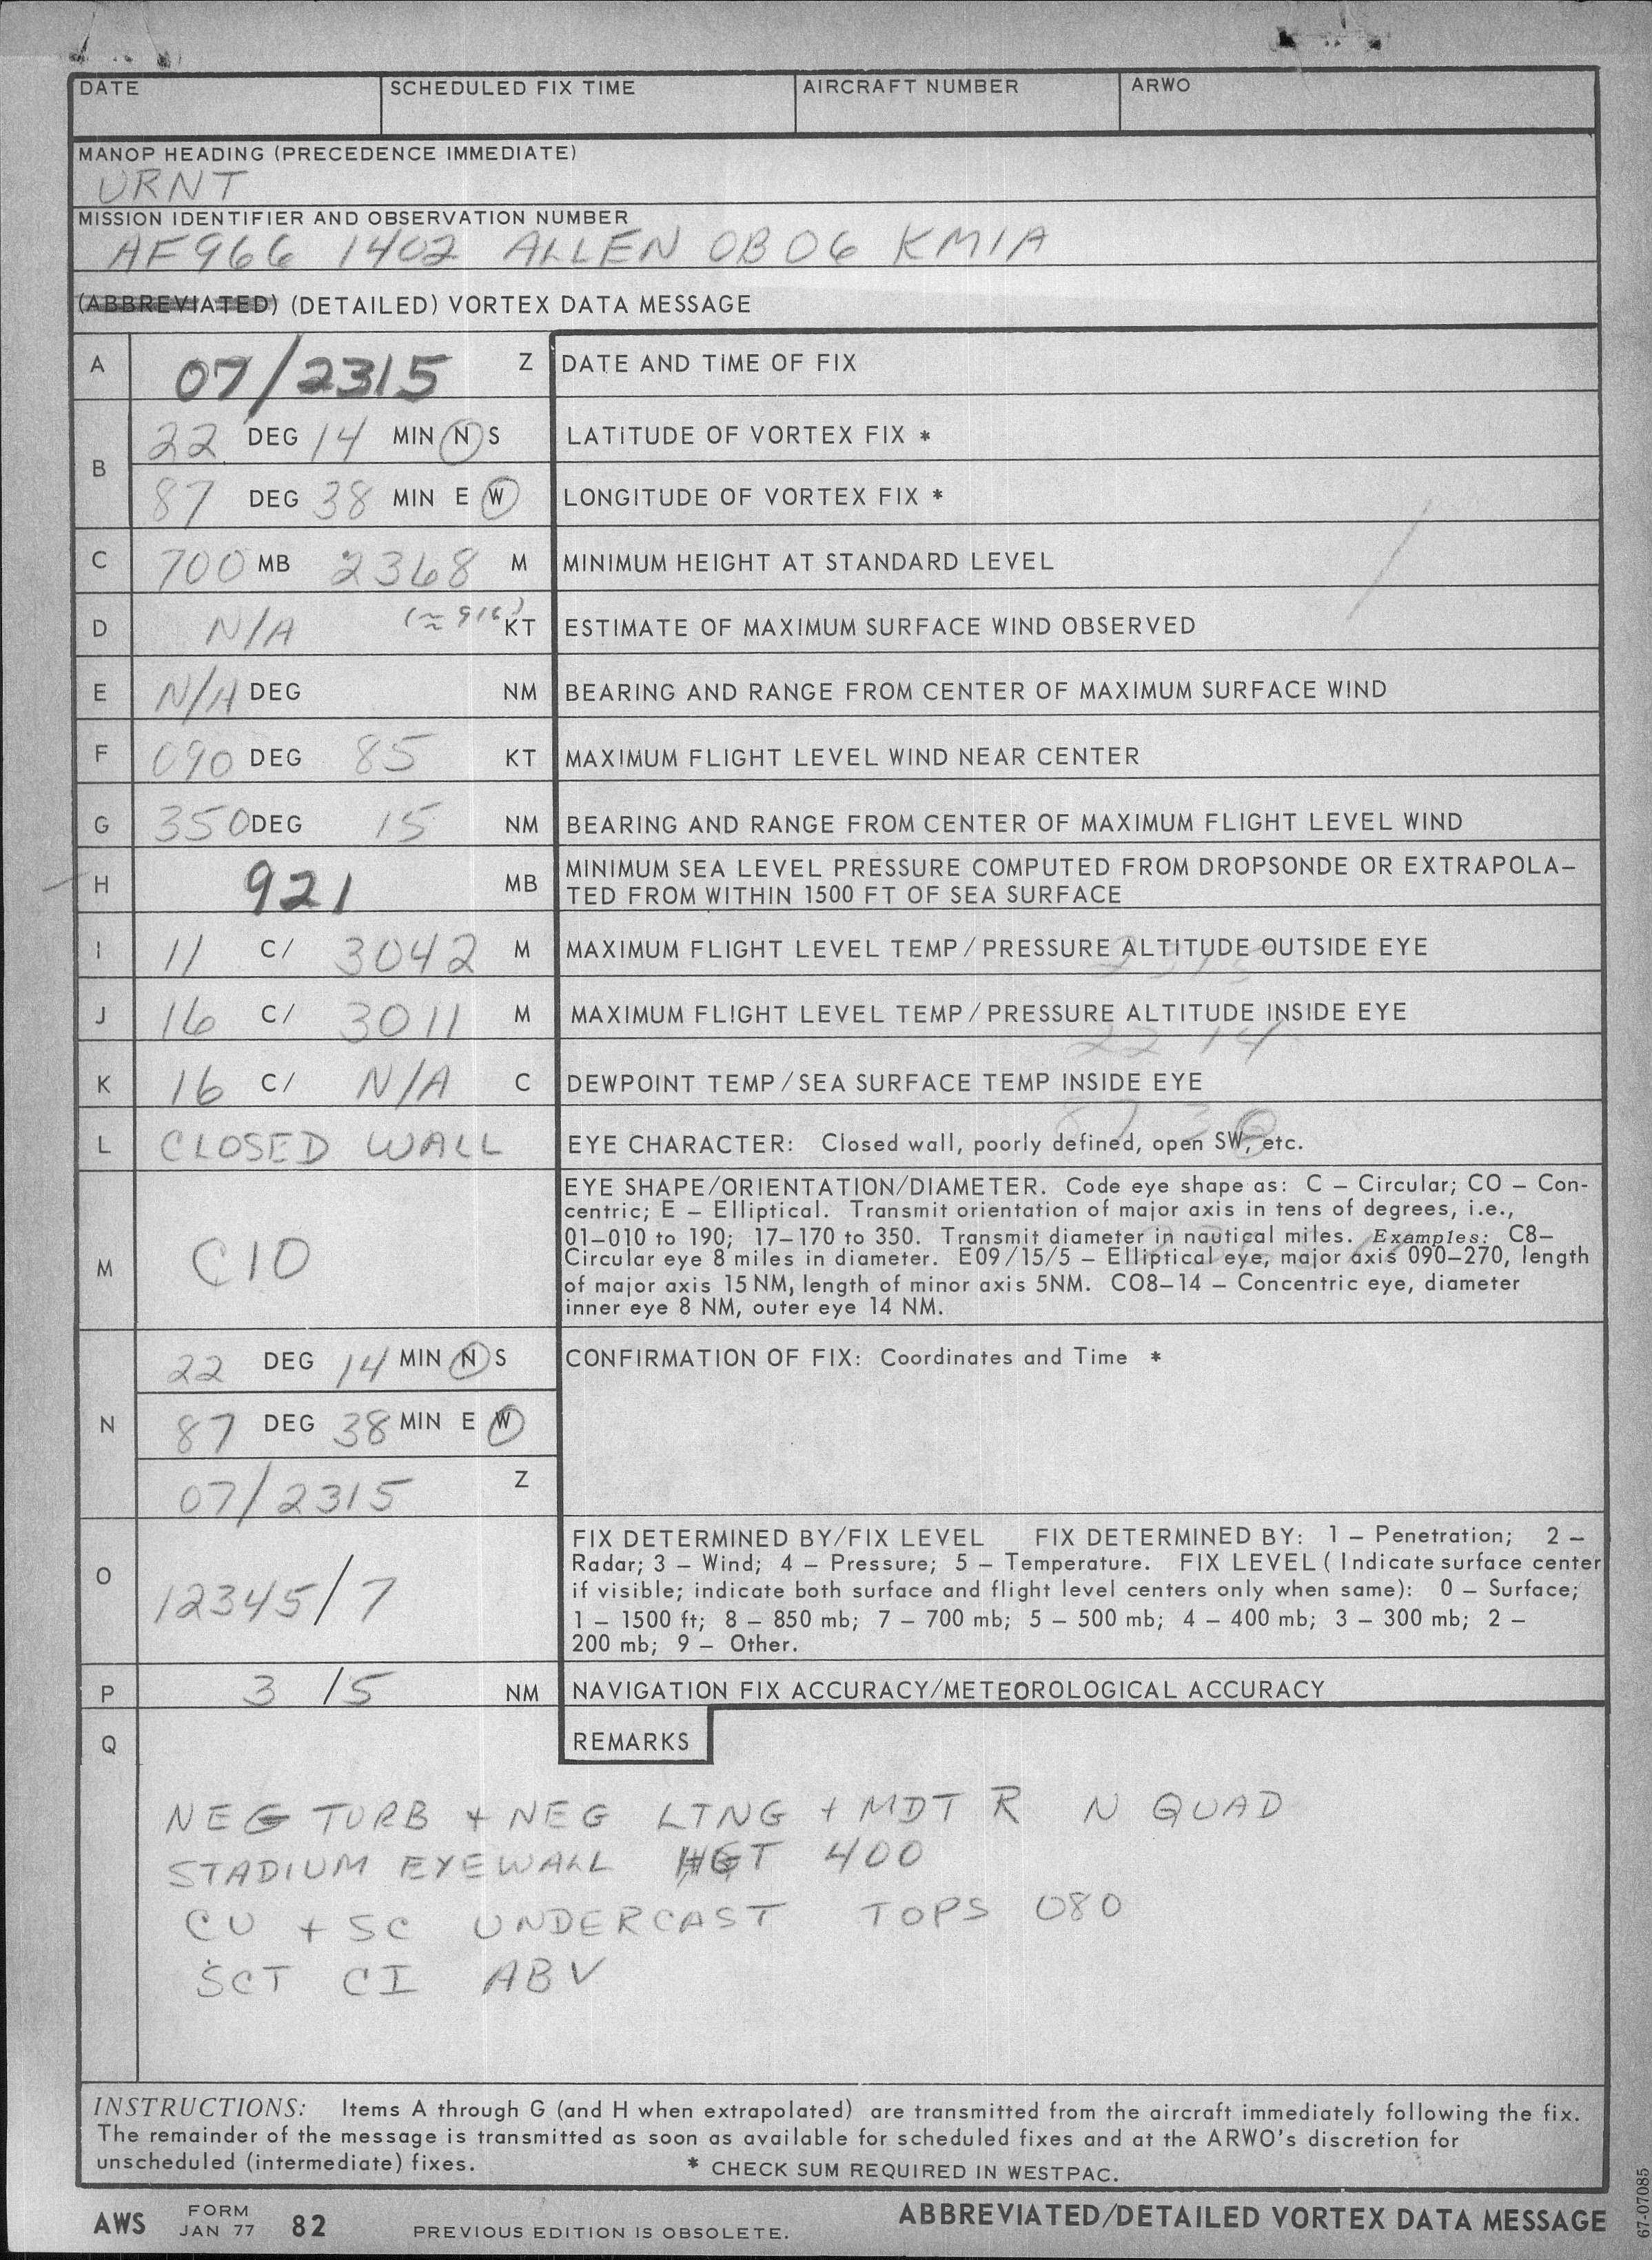 DATE SCHEDULED FIX TIME AIRCRAFT NUMBER ARWO
MANOP HEADING (PRECEDENCE IMMEDIATE)
URNT
MISSION IDENTIFIER AND OBSERVATION NUMBER
AF966 1402 ALLEN OB06 KMIA
(ABBREVIATED) (DETAILED) VORTEX DATA MESSAGE
A 07/2315 Z DATE AND TIME OF FIX
B 22 DEG 14 MIN N S LATITUDE OF VORTEX FIX *
87 DEG 38 MIN E W LONGITUDE OF VORTEX FIX *
C 700 MB 2368 M MINIMUM HEIGHT AT STANDARD LEVEL
D N/A (≈ 916) KT ESTIMATE OF MAXIMUM SURFACE WIND OBSERVED
E N/A DEG NM BEARING AND RANGE FROM CENTER OF MAXIMUM SURFACE WIND
F 090 DEG 85 KT MAXIMUM FLIGHT LEVEL WIND NEAR CENTER
G 350 DEG 15 NM BEARING AND RANGE FROM CENTER OF MAXIMUM FLIGHT LEVEL WIND
H 921 MB MINIMUM SEA LEVEL PRESSURE COMPUTED FROM DROPSONDE OR EXTRAPOLA-
TED FROM WITHIN 1500 FT OF SEA SURFACE
I 11 C/ 3042 M MAXIMUM FLIGHT LEVEL TEMP/PRESSURE ALTITUDE OUTSIDE EYE
J 16 C/ 3011 M MAXIMUM FLIGHT LEVEL TEMP/PRESSURE ALTITUDE INSIDE EYE
22 14
K 16 C/ N/A C DEWPOINT TEMP/SEA SURFACE TEMP INSIDE EYE
L CLOSED WALL EYE CHARACTER: Closed wall, poorly defined, open SW, etc.
M C10 EYE SHAPE/ORIENTATION/DIAMETER. Code eye shape as: C – Circular; CO – Con-
centric; E – Elliptical. Transmit orientation of major axis in tens of degrees, i.e.,
01–010 to 190; 17–170 to 350. Transmit diameter in nautical miles. Examples: C8–
Circular eye 8 miles in diameter. E09/15/5 – Elliptical eye, major axis 090–270, length
of major axis 15 NM, length of minor axis 5NM. CO8–14 – Concentric eye, diameter
inner eye 8 NM, outer eye 14 NM.
N 22 DEG 14 MIN N S CONFIRMATION OF FIX: Coordinates and Time *
87 DEG 38 MIN E W
07/2315 Z
O 12345/7 FIX DETERMINED BY/FIX LEVEL FIX DETERMINED BY: 1 – Penetration; 2 –
Radar; 3 – Wind; 4 – Pressure; 5 – Temperature. FIX LEVEL (Indicate surface center
if visible; indicate both surface and flight level centers only when same): 0 – Surface;
1 – 1500 ft; 8 – 850 mb; 7 – 700 mb; 5 – 500 mb; 4 – 400 mb; 3 – 300 mb; 2 –
200 mb; 9 – Other.
P 3 /5 NM NAVIGATION FIX ACCURACY/METEOROLOGICAL ACCURACY
Q REMARKS
NEG TURB + NEG LTNG + MDT R N QUAD
STADIUM EYEWALL HGT 400
CU + SC UNDERCAST TOPS 080
SCT CI ABV
INSTRUCTIONS: Items A through G (and H when extrapolated) are transmitted from the aircraft immediately following the fix.
The remainder of the message is transmitted as soon as available for scheduled fixes and at the ARWO's discretion for
unscheduled (intermediate) fixes. * CHECK SUM REQUIRED IN WESTPAC.
AWS FORM JAN 77 82 PREVIOUS EDITION IS OBSOLETE. ABBREVIATED/DETAILED VORTEX DATA MESSAGE
67-07085